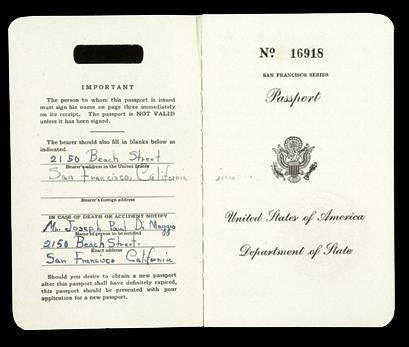 IMPORTANT
The person to whom this passport is issued
must sign his name on page three immediately
on its receipt. The passport is NOT VALID
unless it has been signed.
The bearer should also fill in blanks below as
indicated.
2150 Beach Street
Bearer's address in the United States
San Francisco, California
Bearer's foreign address
IN CASE OF DEATH OR ACCIDENT NOTIFY
Mr. Joseph Paul Di Maggio
Name of person to be notified
2150 Beach Street
Exact address
San Francisco California
Should you desire to obtain a new passport
after this passport shall have definitely expired,
this passport should be presented with your
application for a new passport.
Nº 16918
SAN FRANCISCO SERIES
Passport
United States of America
Department of State